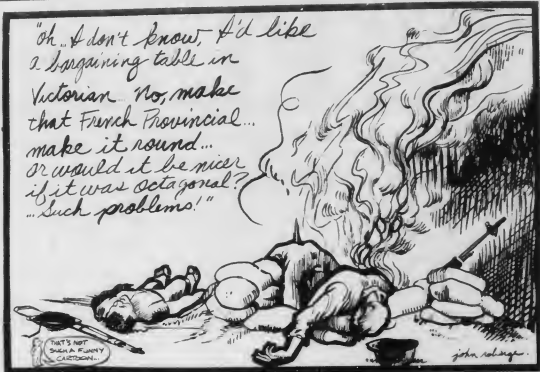 "oh... I don't know, I'd like
a bargaining table in
Victorian... No, make
that French Provincial...
make it round...
or would it be nicer
if it was octagonal?
...Such problems!"
THAT'S NOT
SUCH A FUNNY
CARTOON...
john roberge